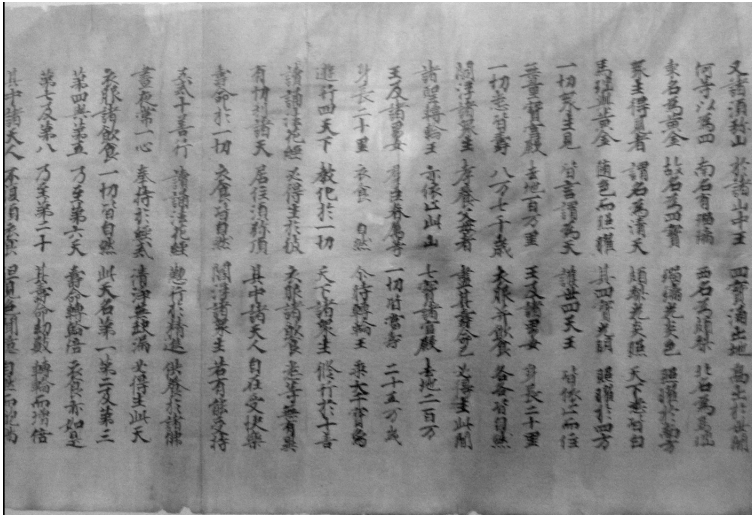 又諸須弥山 於諸山中王 四寶涌出地 高出於世間
何等以為四 南名有瑠璃 西名為頗梨 北名為馬瑙
東名為黃金 故名為四寶 瑠璃光炎色 照耀於南方
衆生得見者 謂名為清天 頗梨光炎照 天下悉皆白
馬瑙與黃金 隨色而照耀 其四寶光明 照耀於四方
一切衆生見 皆言謂為天 護世四天王 皆依止而住
無量寶宮殿 去地百万里 王及諸婇女 身長二十里
一切悉皆壽 八万七千歲 衣服并飲食 各各皆自然
閻浮諸衆生 孝養父母者 盡其壽命已 必得生此間
諸聖轉輪王 亦依止此山 七寶諸宮殿 去地二百万
王及諸婇女 眷属等 一切皆當壽 二十五万歲
身長二十里 衣食 自然 轉輪王 乘六千寶
遊行四天下 教化於一切 天下諸衆生 修行於十善
讀誦法花經 必得生於彼 衣服諸飲食 悉等無有異
有忉利諸天 居住須弥頂 其中諸天人 自在受快樂
壽命於一切 衣食皆自然 閻浮諸衆生 若有能受持
五戒十善行 讀誦法花經 懃行於精進 供養於諸佛
晝夜常一心 奉持於經戒 清淨無缺漏 必得生此天
衣服諸飲食 一切皆自然 此天名第一 第二及第三
第四與第五 乃至第六天 壽命轉輪倍 衣食亦如是
第七及第八 乃至第二十 其壽命劫數 轉輪而增倍
其中諸天人 不復 衣 但見 自然而